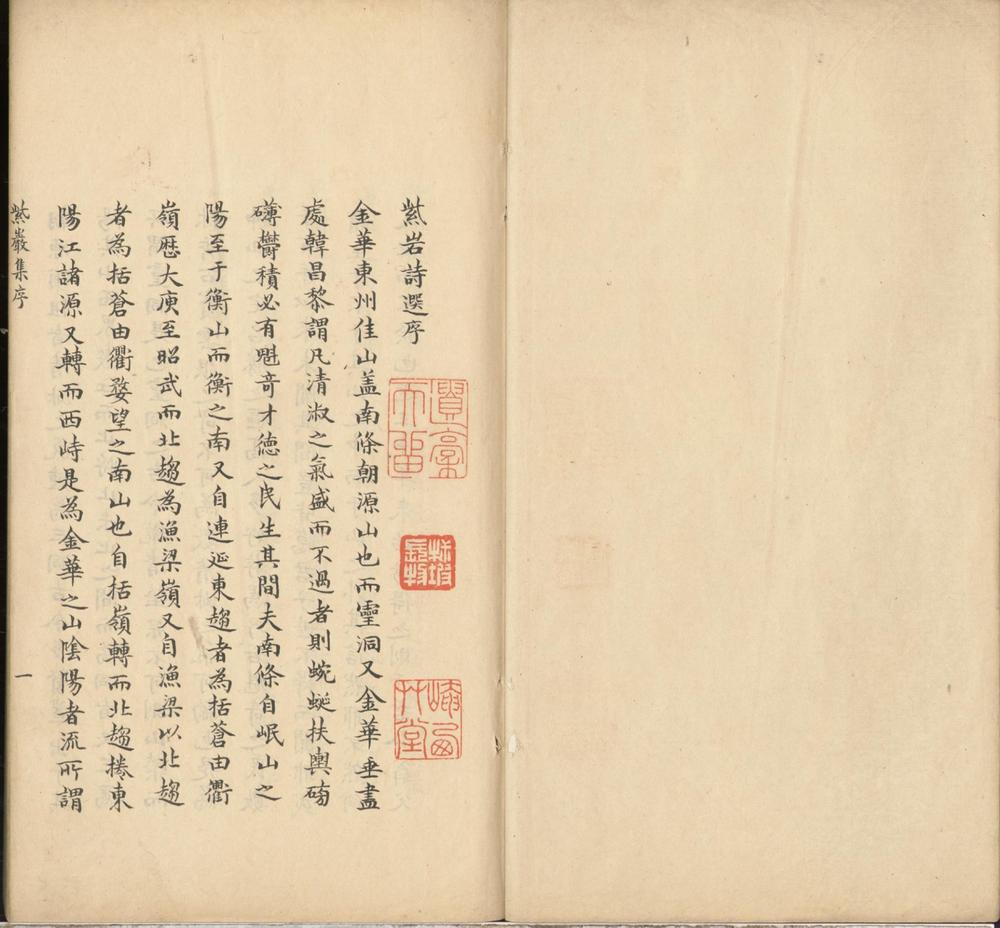 紫岩詩選序
金華東州佳山盖南條朝源山也而靈洞又金華垂盡
處韓昌黎謂凡清淑之氣盛而不過者則蜿蜒扶輿磅
礴欝積必有魁竒才徳之民生其間夫南條自岷山之
陽至于衡山而衡之南又自連延東趨者為括蒼由衢
嶺歴大庾至昭武而北趨為漁梁嶺又自漁梁以北趨
者為括蒼由衢婺望之南山也自括嶺轉而北趨捲東
陽江諸源又轉而西峙是為金華之山陰陽者流所謂
紫巖集序
一